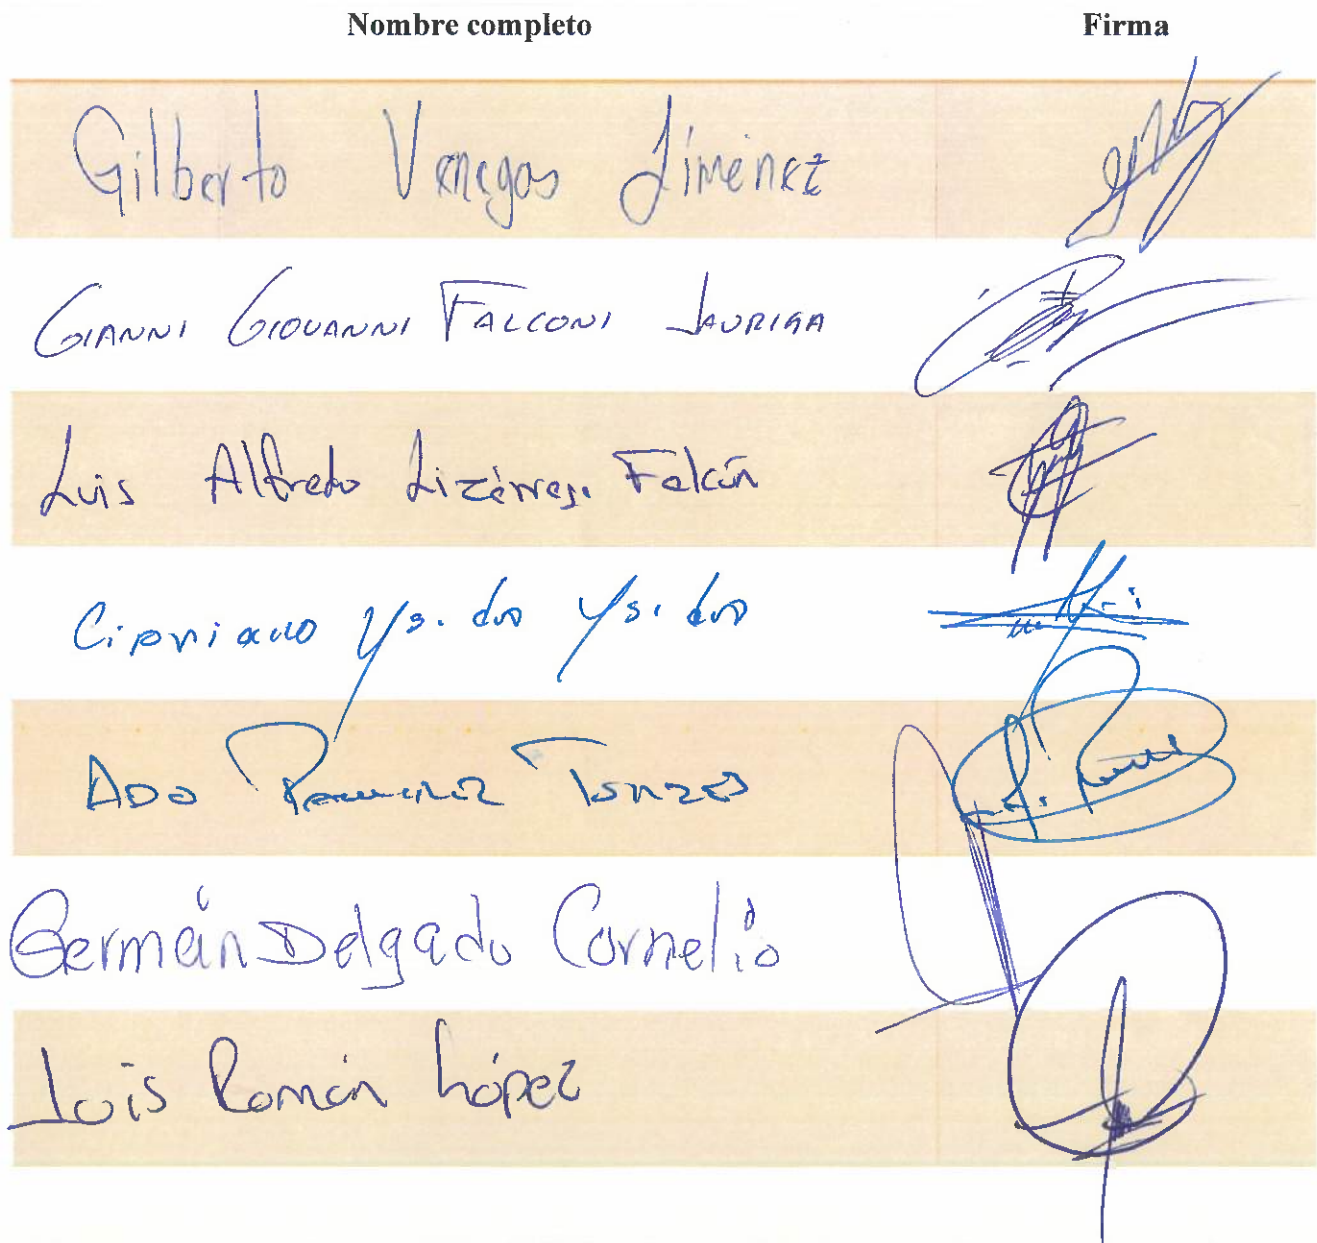 Nombre completo Firma
Gilberto Venegas Jiménez
GIANNI GIOVANNI FALCONI JAURIGA
Luis Alfredo Lizárraga Falcón
Cipriano Ysidro Ysidro
ADO Ramirez Torres
Germán Delgado Cornelio
Luis Román López